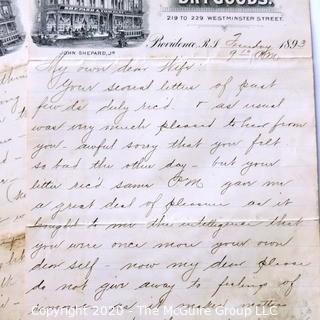 DRY GOODS.
219 TO 229 WESTMINSTER STREET.
JOHN SHEPARD, Jr
Providence, R.I. Tuesday 1893
9 PM
My own dear Wife:
Your several letters of past
few ds duly rec'd & as usual
was very much pleased to hear from
you - awful sorry that you felt
so bad the other day - but your
letter rec'd same PM gave me
a great deal of pleasure as it
brought to me the intelligence that
you were once more your own
dear self - now my dear please
do not give away to feelings of
matters
Copyright 2020 - The McGuire Group LLC